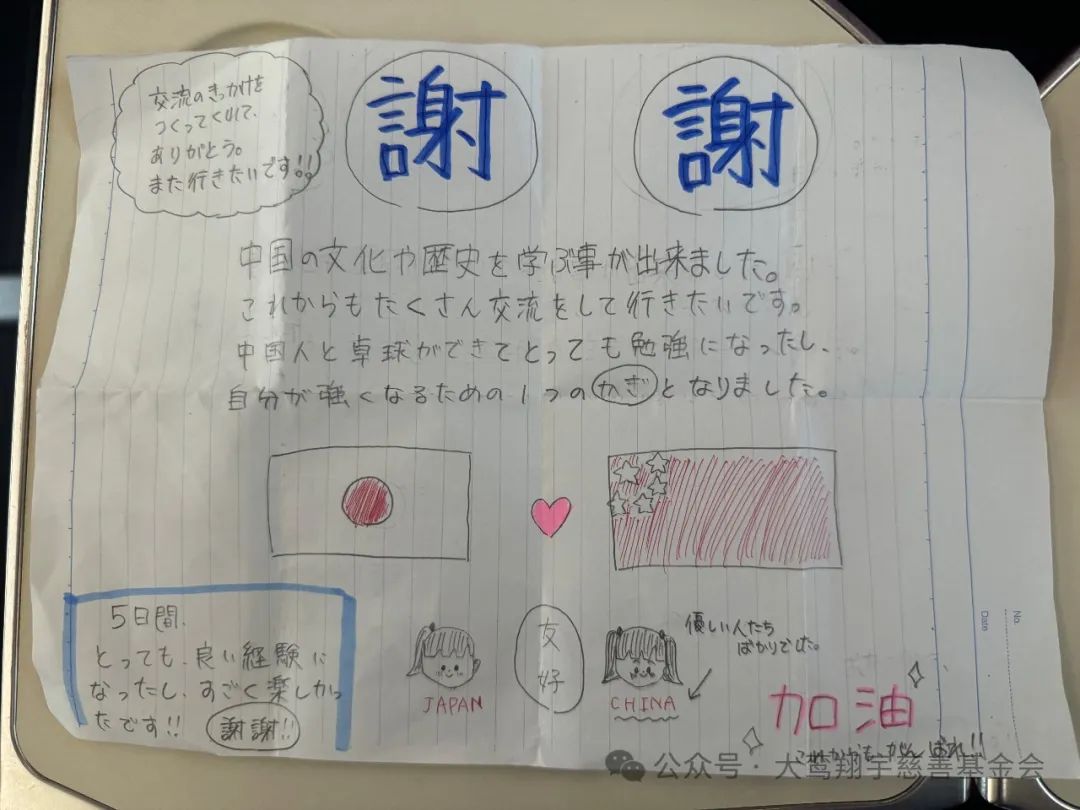 交流のきっかけを
つくってくれて、
ありがとう。
また行きたいです!!
謝 謝
中国の文化や歴史を学ぶ事が出来ました。
これからもたくさん交流をして行きたいです。
中国人と卓球ができてとっても勉強になったし、
自分が強くなるための1つのかぎとなりました。
5日間、
とっても、良い経験に
なったし、すごく楽しかっ
たです!!
謝謝!!
JAPAN
友好
優しい人たち
ばかりでした。
CHINA
加油
これからも、がんばれ!!
No.
Date
公众号·犬鸾翔宇慈善基金会